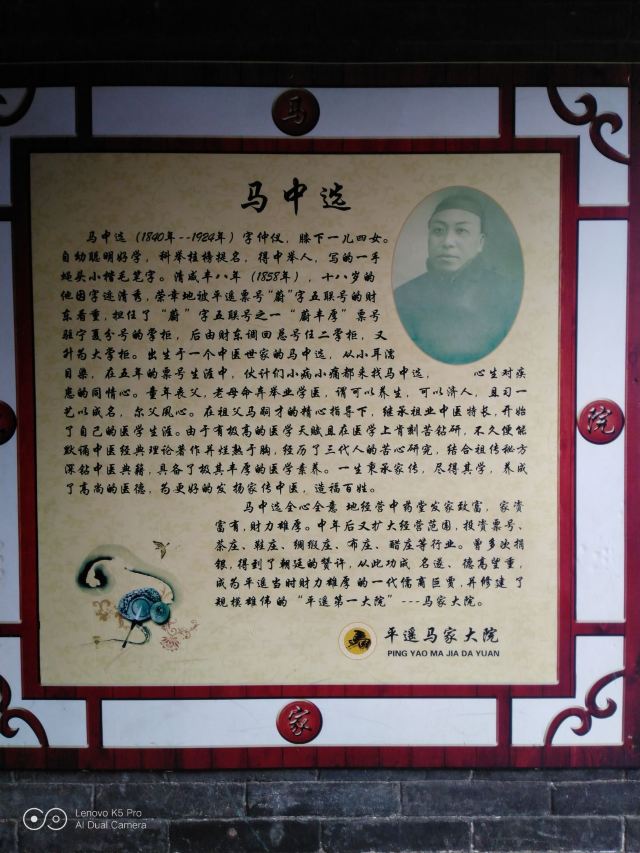 马
马中选
马中选（1840年--1924年）字仲仪，膝下一儿四女。
自幼聪明好学，科举桂榜提名，得中举人，写的一手
蝇头小楷毛笔字。清咸丰八年（1858年），十八岁的
他因字迹清秀，荣幸地被平遥票号“蔚”字五联号的财
东看重，担任了“蔚”字五联号之一“蔚丰厚”票号
驻宁夏分号的掌柜，后由财东调回总号任二掌柜，又
升为大掌柜。出生于一个中医世家的马中选，从小耳濡
目染，在五年的票号生涯中，伙计们小病小痛都来找马中选， 心生对疾
患的同情心。童年丧父，老母命弃举业学医，谓可以养生，可以济人，且习一
艺以成名，尔父夙心。在祖父马嗣才的精心指导下，继承祖业中医特长，开始
了自己的医学生涯。由于有极高的医学天赋且在医学上肯刻苦钻研，不久便能
默诵中医经典理论著作并烂熟于胸，经历了三代人的苦心研究，结合祖传秘方
深钻中医典籍，具备了极其丰厚的医学素养。一生秉承家传，尽得其学，养成
了高尚的医德，为更好的发扬家传中医，造福百姓。
马中选全心全意 地经营中药堂发家致富，家资
富有，财力雄厚。中年后又扩大经营范围，投资票号、
茶庄、鞋庄、绸缎庄、布庄、醋庄等行业。曾多次捐
银，得到了朝廷的赞许，从此功成 名遂、德高望重，
成为平遥当时财力雄厚的一代儒商巨贾，并修建 了
规模雄伟的“平遥第一大院”---马家大院。
平遥马家大院
PING YAO MA JIA DA YUAN
院
家
Lenovo K5 Pro
AI Dual Camera